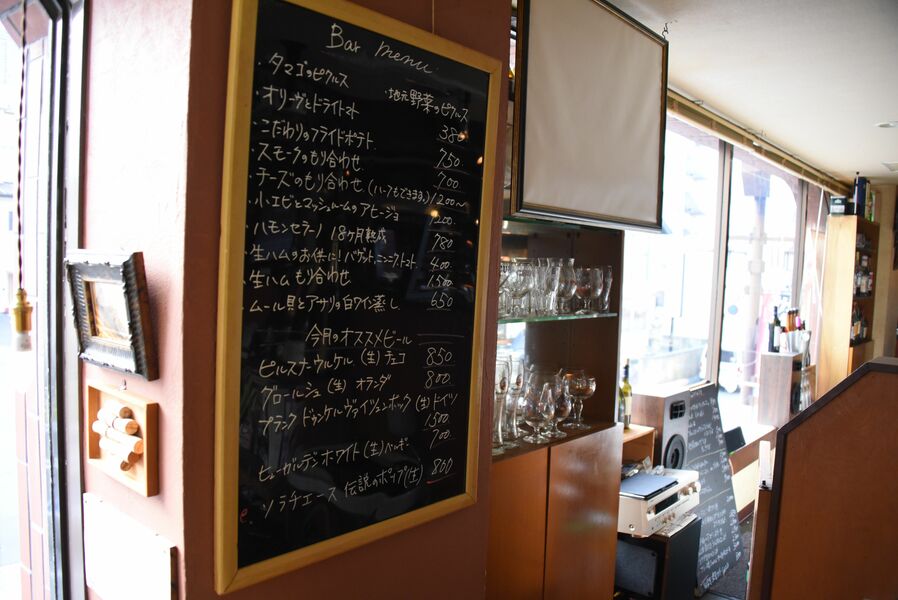 Bar menu
・タマゴのピクルス ・地元野菜のピクルス
・オリーヴとドライトマト 380
・こだわりのフライドポテト 750
・スモークのもり合わせ 700
・チーズのもり合わせ (ハーフもできます。) 1200〜
・小エビとマッシュルームのアヒージョ 1200
・ハモンセラーノ 18ヶ月熟成 780
・生ハムのお供に! バゲット、ニンニクトマト 400
・生ハムもり合わせ 1,500
・ムール貝とアサリの白ワイン蒸し 650
今月のオススメビール
ピルスナーウルケル (生) チェコ 850
グロールシュ (生) オランダ 800
ブランク ドゥンケルヴァイツェンボック (生) ドイツ
1,500
ヒューガルデンホワイト (生) ベルギー 700
ソラチエース 伝説のホップ (生) 800